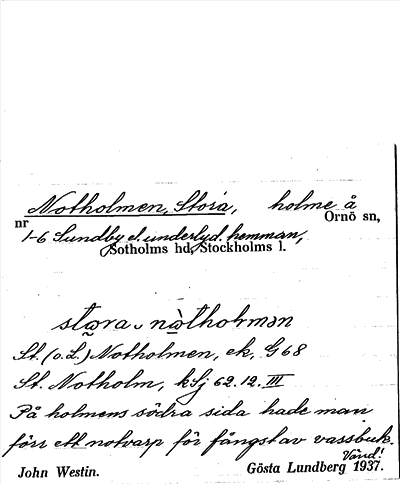 Notholmen, Stora, holme å
nr Ornö sn,
1-6 Sundby el. underlyd. hemman,
Sotholms hd, Stockholms l.
stωra nὼthoƚmən
St. (o. L.) Notholmen, ek, G 68
St. Notholm, kfj 62.12. III
På holmens södra sida hade man
förr ett notvarp för fångst av vassbuk.
Vänd!
John Westin. Gösta Lundberg 1937.